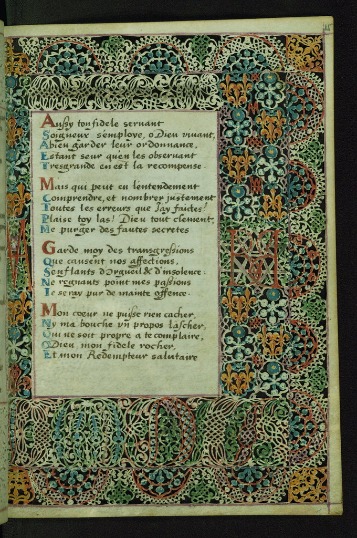 Aussy ton fidele servant
Soigneux s'employe, o Dieu vivant,
A bien garder leur ordonnance,
Estant seur qu'en les observant
Tresgrande en est la recompense.
Mais qui peut en lentendement
Comprendre, et nombrer justement
Toutes les erreurs que J'ay faites?
Plaise toy las! Dieu tout clement,
Me purger des fautes secretes
Garde moy des transgressions
Que causent nos affections,
Senflants d'orgueil & d'insolence:
Ne regnants point mes passions
Ie seray pur de mainte offence.
Mon coeur ne puisse rien cacher,
Ny ma bouche vn propos lascher,
Qui ne soit propre a te complaire,
O Dieu, mon fidele rocher,
Et mon Redempteur salutaire